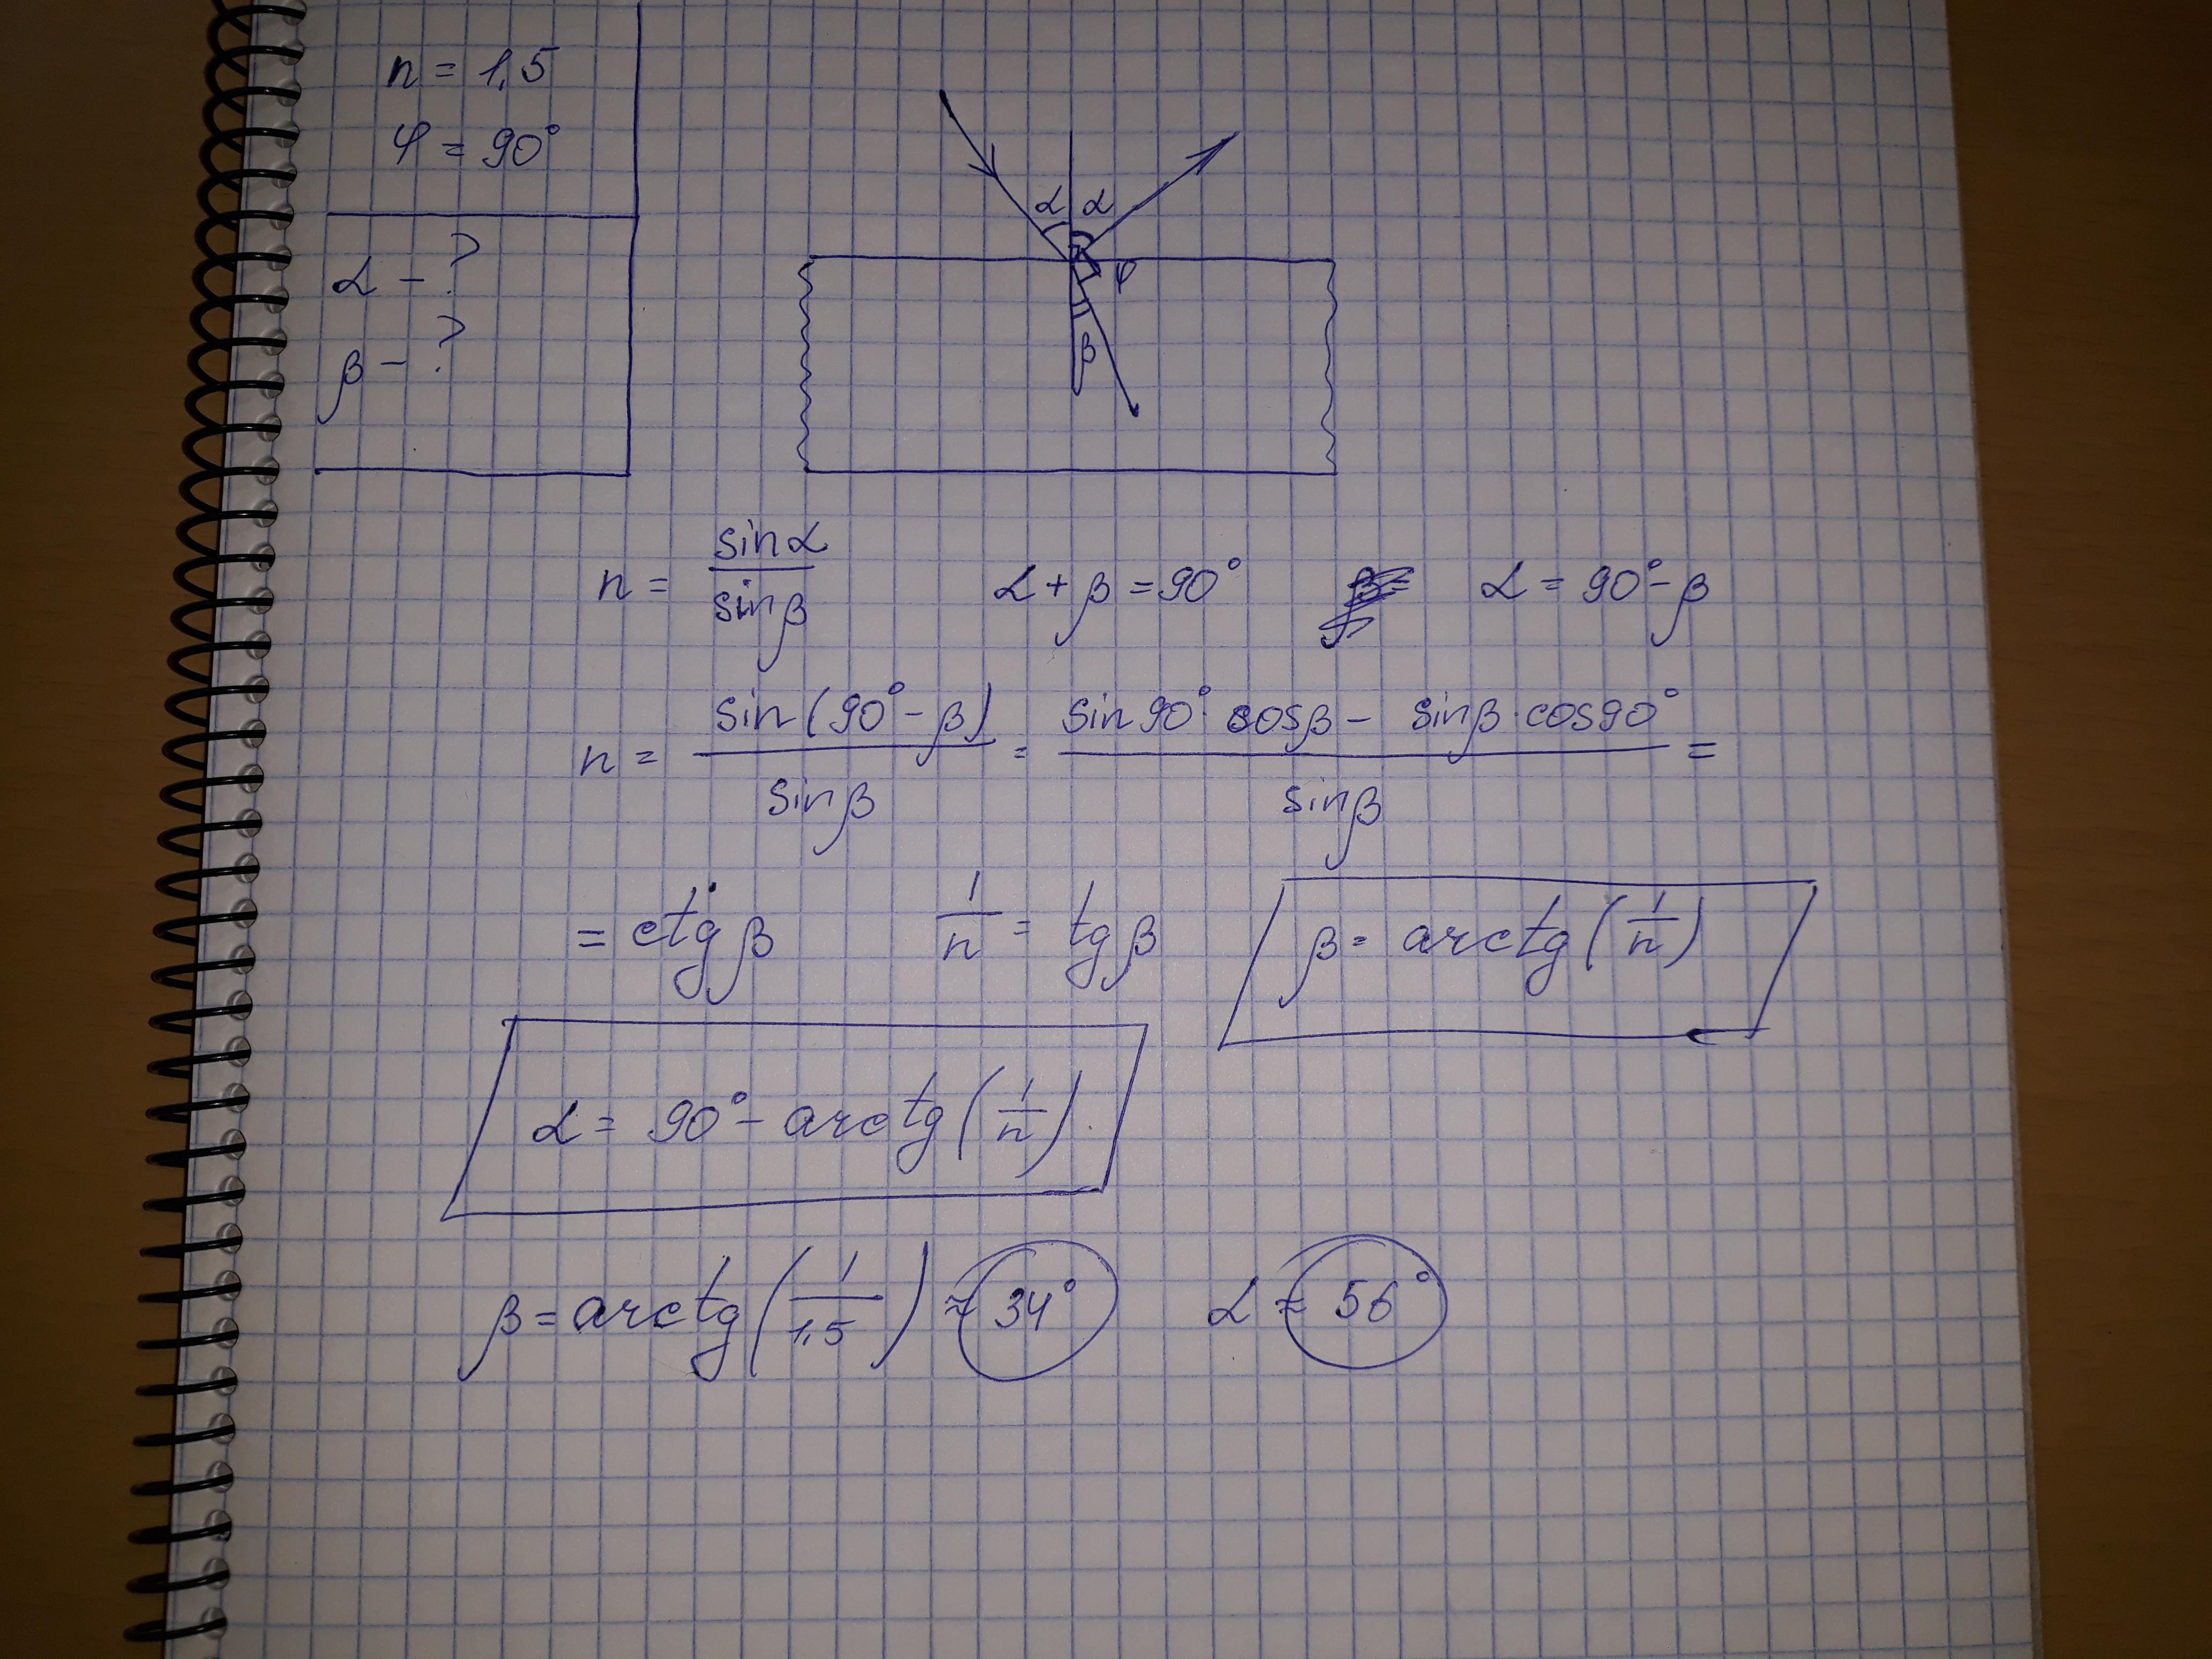 n = 1,5
φ = 90°
α - ?
β - ?
α α
φ
β
n = sinα / sinβ α + β = 90° α = 90° - β
n = sin(90° - β) / sinβ = (sin90° · cosβ - sinβ · cos90°) / sinβ =
= ctgβ 1/n = tgβ β = arctg(1/n)
α = 90° - arctg(1/n).
β = arctg(1/1,5) ≈ 34° α ≈ 56°